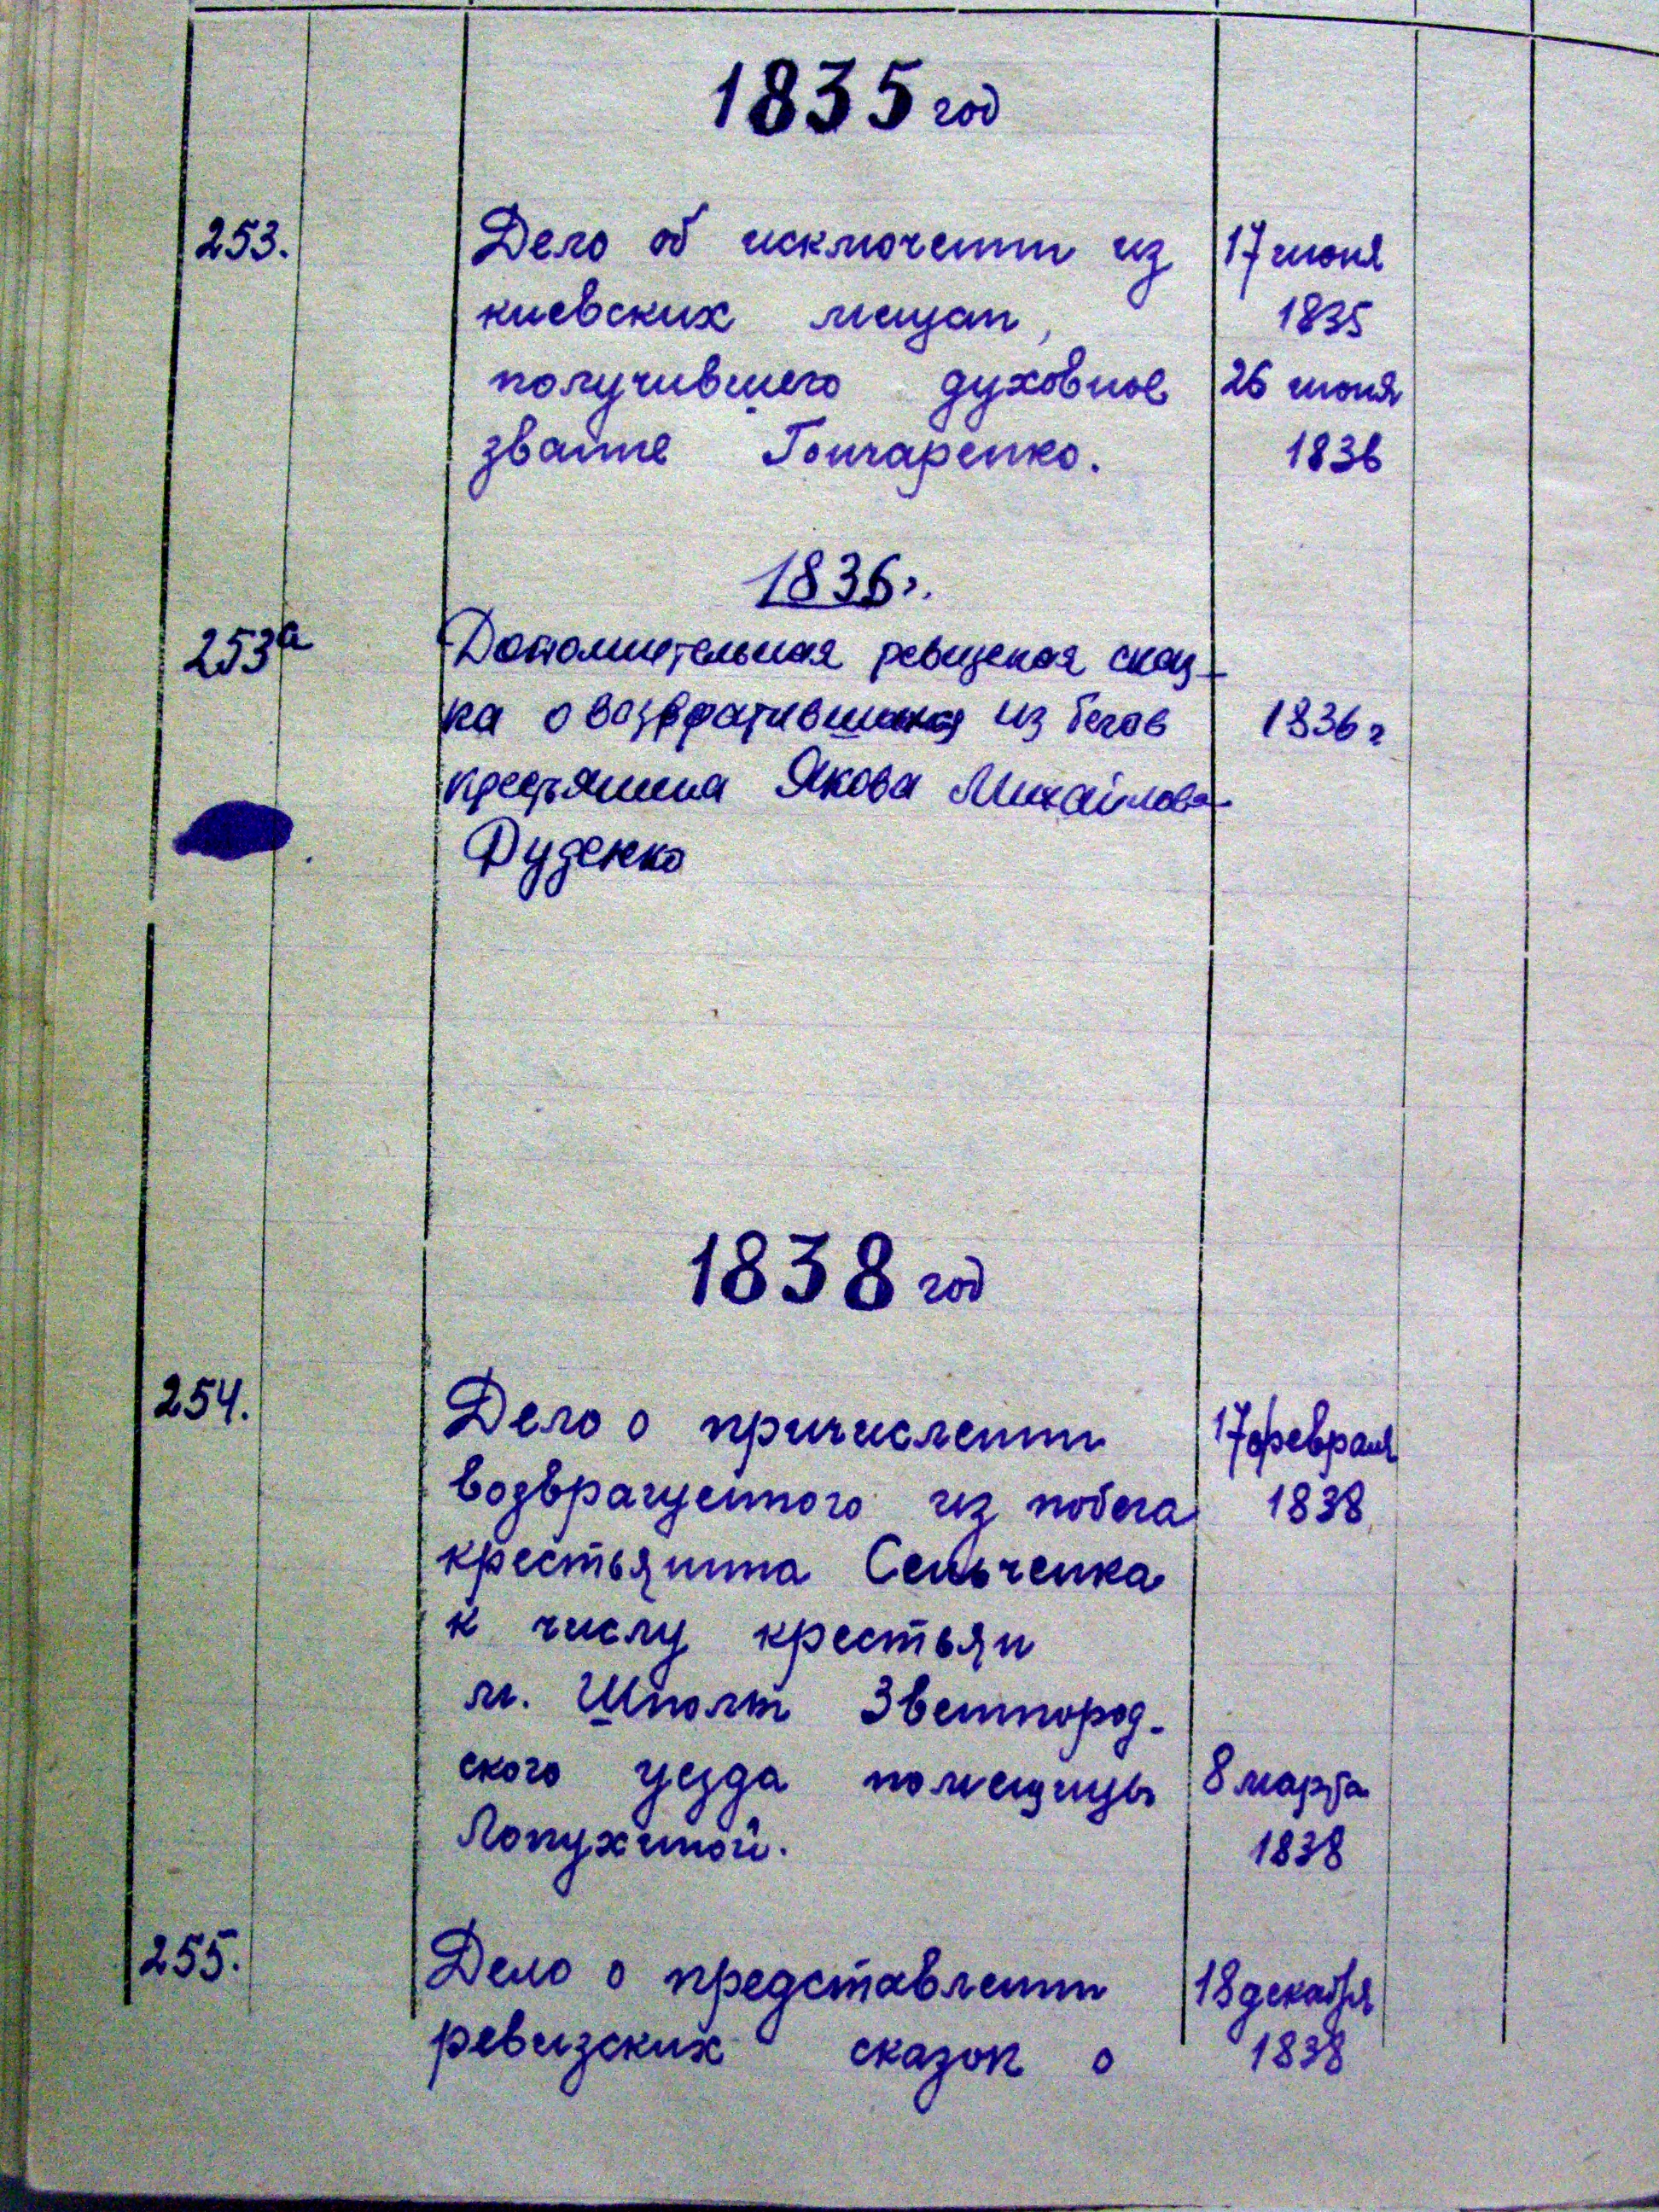 1835 год
253. Дело об исключении из 17 июня
киевских мещан, 1835
получившего духовное 26 июня
звание Гончаренко. 1836
1836 г.
253а Дополнительная ревизская сказ-
ка о возвратившимся из бегов 1836 г
крестьянина Якова Михайлова
Дуденко
1838 год
254. Дело о причислении 17 февраля
возвращенного из побега 1838
крестьянина Сельченка
к числу крестьян
м. Шполы Звенигород-
ского уезда помещицы 8 марта
Лопухиной. 1838
255. Дело о представлении 18 декабря
ревизских сказок о 1838